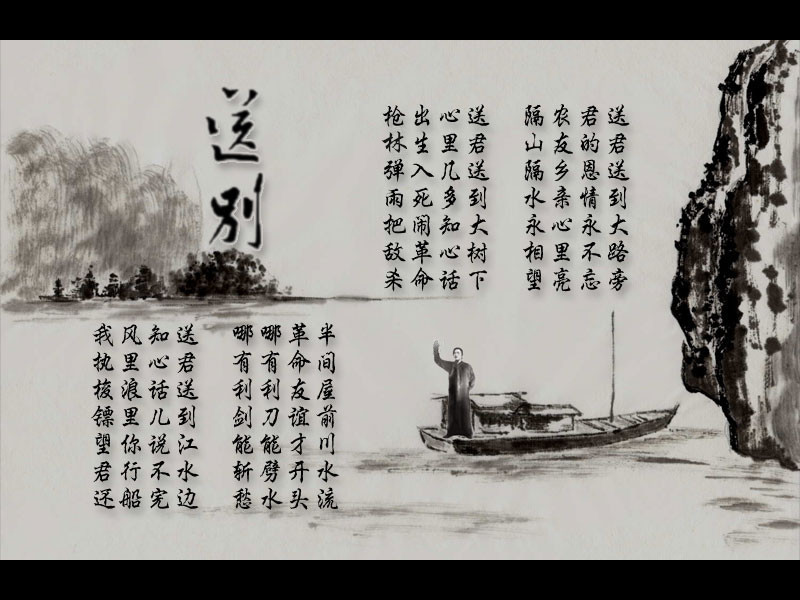 送别
送君送到大路旁
君的恩情永不忘
农友乡亲心里亮
隔山隔水永相望
送君送到大树下
心里几多知心话
出生入死闹革命
枪林弹雨把敌杀
半间屋前川水流
革命友谊才开头
哪有利刀能劈水
哪有利剑能斩愁
送君送到江水边
知心话儿说不完
风里浪里你行船
我执梭镖望君还